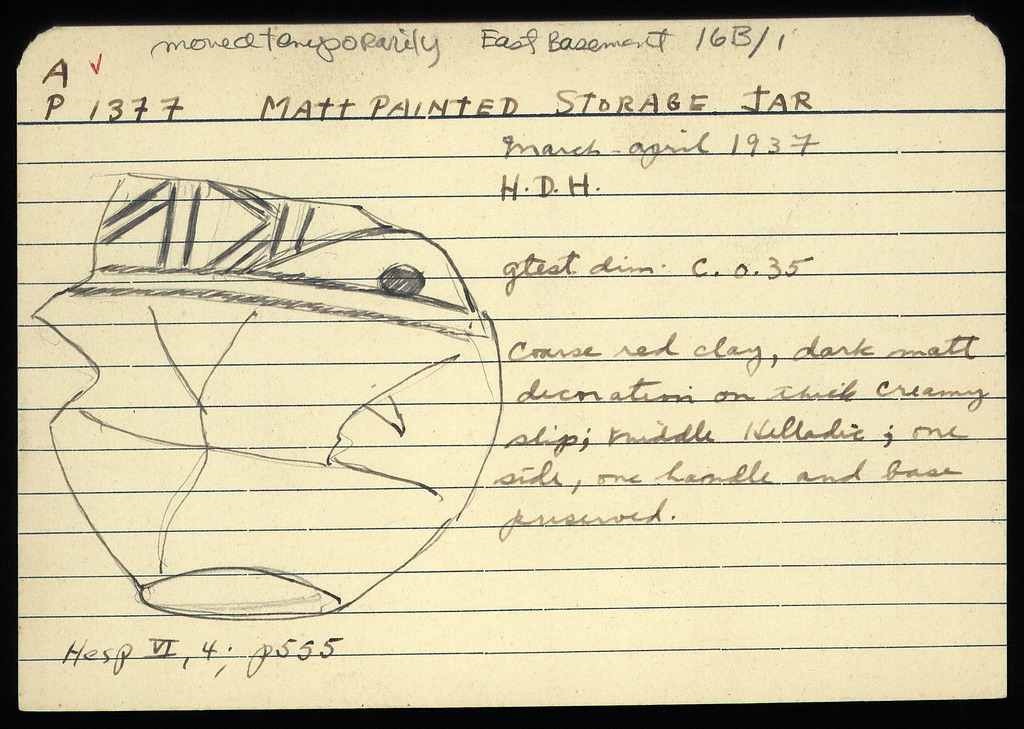 moved temporarily East Basement 16B/1
A ✓
P 1377 MATT PAINTED STORAGE JAR
March-april 1937
H.D.H.
gtest dim. c. 0.35
Coarse red clay, dark matt
decoration on thick creamy
slip; Middle Helladic; one
side, one handle and base
preserved.
Hesp VI, 4; p555